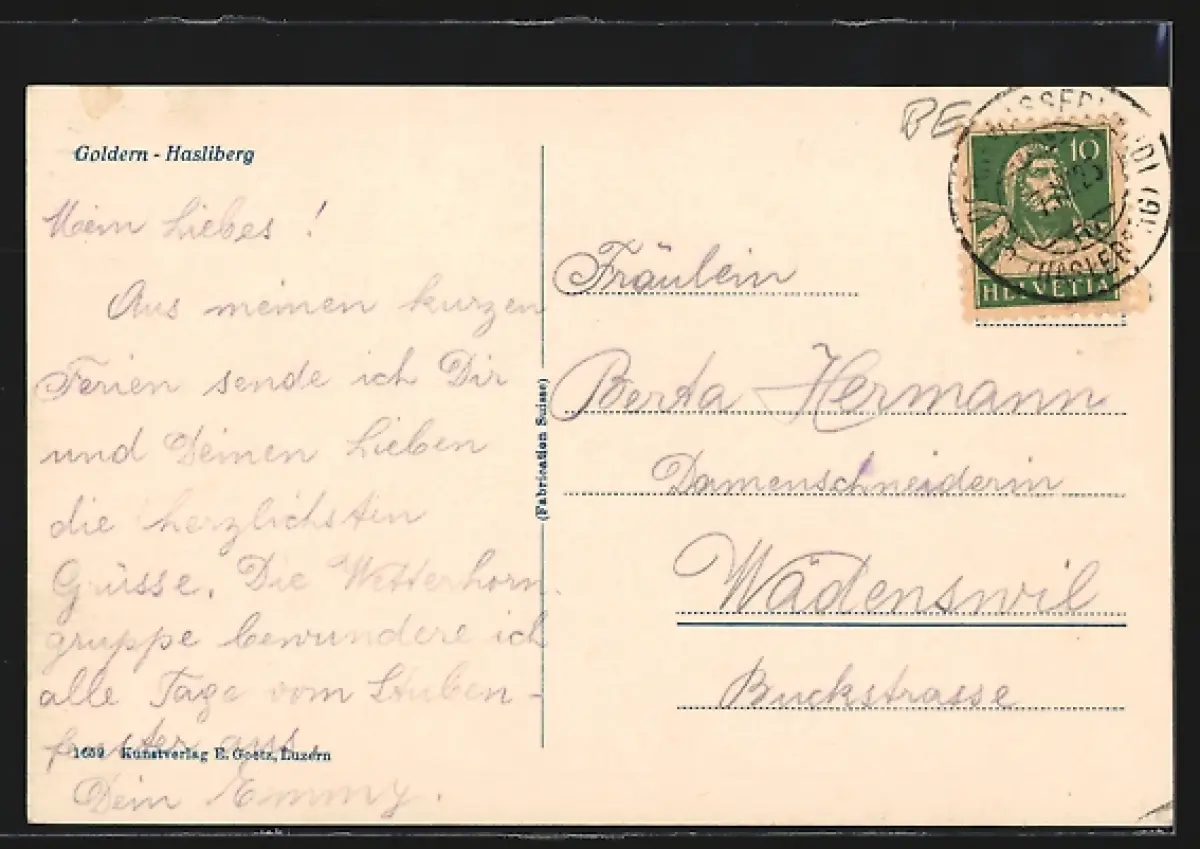 Goldern - Hasliberg
Mein Liebes!
Aus meinen kurzen
Ferien sende ich Dir
und Deinen Lieben
die herzlichsten
Grüsse. Die Wetterhorn
gruppe bewundere ich
alle Tage vom Stuben-
fenster aus.
1659 Kunstverlag E. Goetz, Luzern
Dein Emmy.
(Fabrication Suisse)
BE
10
HELVETIA
Fräulein
Berta Hermann
Damenschneiderin
Wädenswil
Buckstrasse